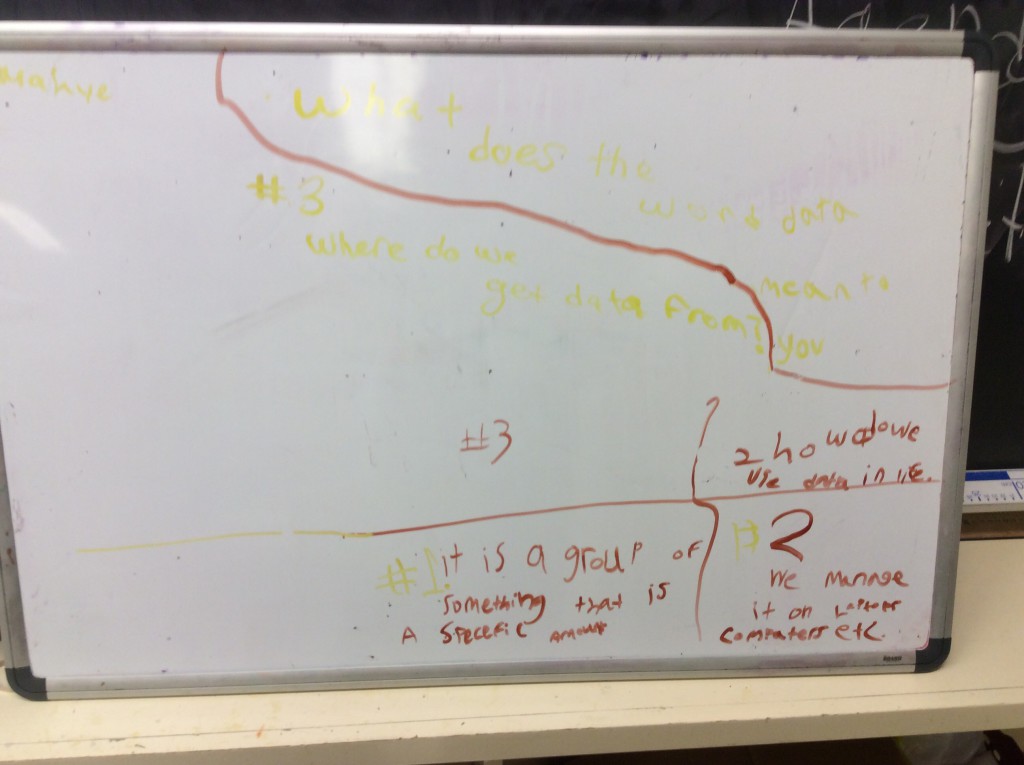 What
does the
word data
mean to
you
#3
Where do we
get data from?
#3
2 how do we
use data in life.
#1. it is a group of
something that is
A specefic amount
#2
We manage
it on Laptops
computers etc.